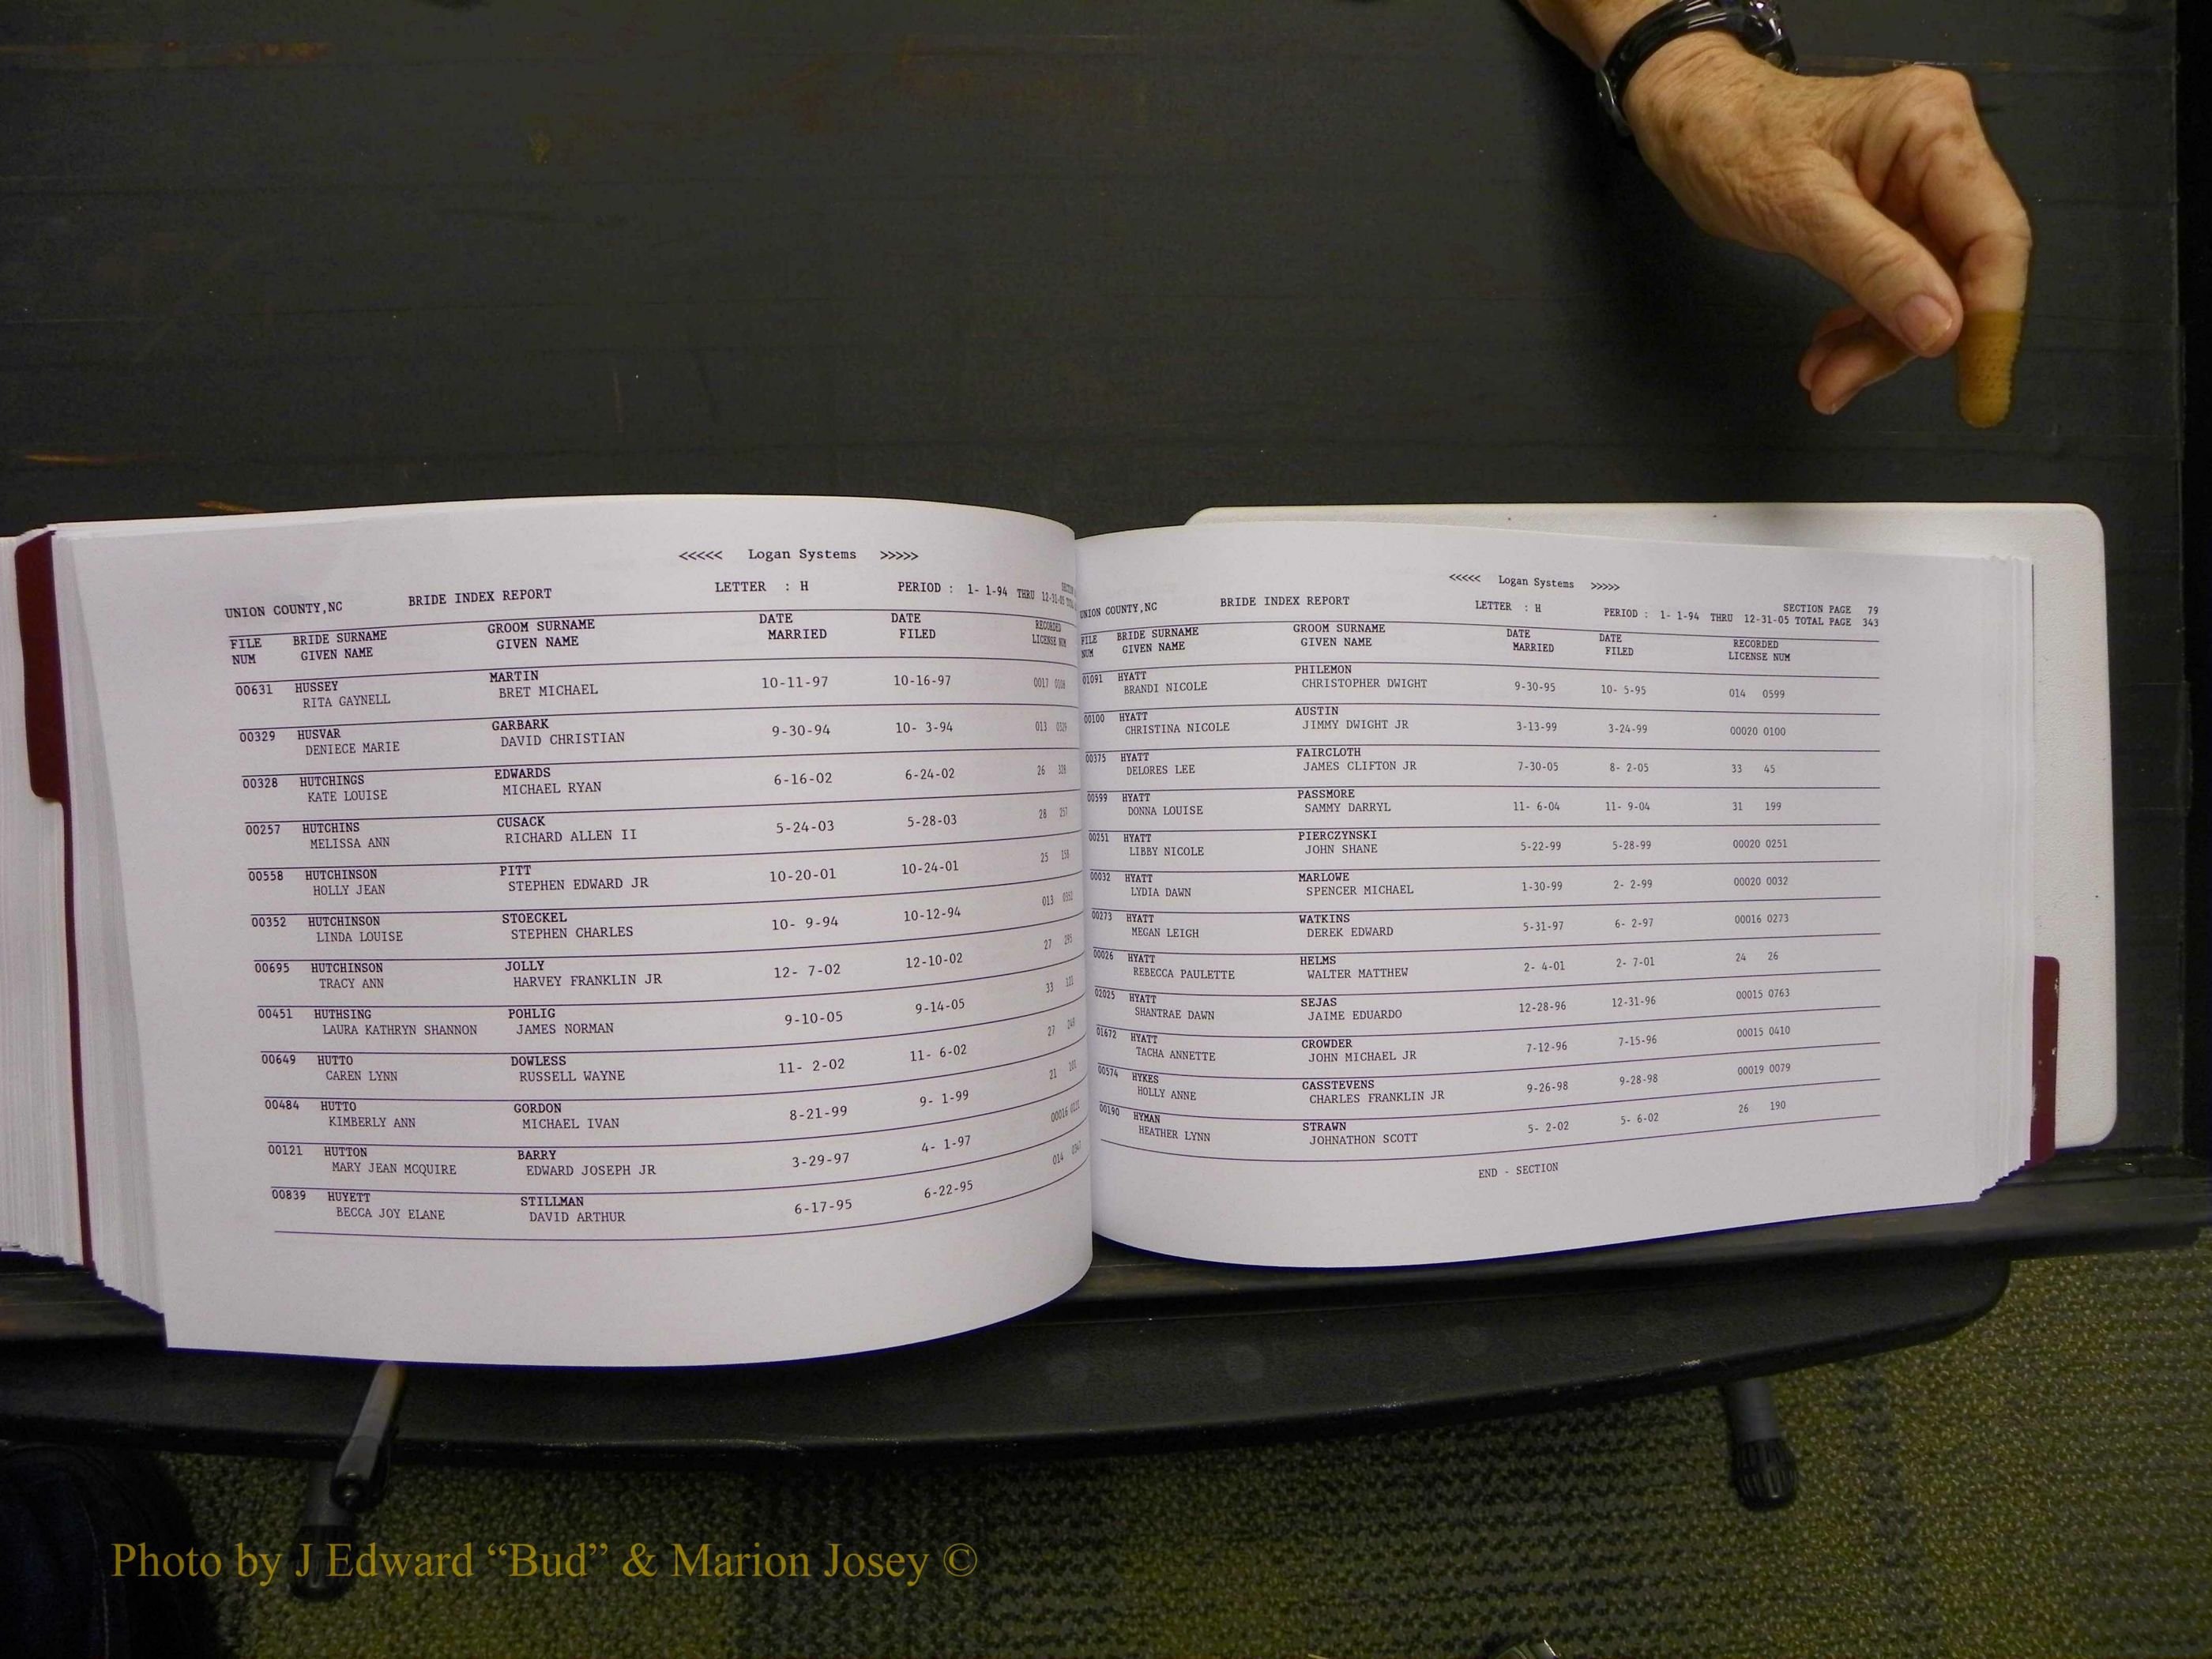 <<<<< Logan Systems >>>>>
UNION COUNTY,NC BRIDE INDEX REPORT LETTER : H PERIOD : 1- 1-94 THRU
FILE BRIDE SURNAME GROOM SURNAME DATE DATE RECORDED
NUM GIVEN NAME GIVEN NAME MARRIED FILED LICENSE NUM
00631 HUSSEY MARTIN 10-11-97 10-16-97 0017
RITA GAYNELL BRET MICHAEL
00329 HUSVAR GARBARK 9-30-94 10- 3-94 013
DENIECE MARIE DAVID CHRISTIAN
00328 HUTCHINGS EDWARDS 6-16-02 6-24-02 26
KATE LOUISE MICHAEL RYAN
00257 HUTCHINS CUSACK 5-24-03 5-28-03 28
MELISSA ANN RICHARD ALLEN II
00558 HUTCHINSON PITT 10-20-01 10-24-01 25
HOLLY JEAN STEPHEN EDWARD JR
00352 HUTCHINSON STOECKEL 10- 9-94 10-12-94 013
LINDA LOUISE STEPHEN CHARLES
00695 HUTCHINSON JOLLY 12- 7-02 12-10-02 27
TRACY ANN HARVEY FRANKLIN JR
00451 HUTHSING POHLIG 9-10-05 9-14-05 33
LAURA KATHRYN SHANNON JAMES NORMAN
00649 HUTTO DOWLESS 11- 2-02 11- 6-02 27
CAREN LYNN RUSSELL WAYNE
00484 HUTTO GORDON 8-21-99 9- 1-99 21
KIMBERLY ANN MICHAEL IVAN
00121 HUTTON BARRY 3-29-97 4- 1-97 00016
MARY JEAN MCQUIRE EDWARD JOSEPH JR
00839 HUYETT STILLMAN 6-17-95 6-22-95 014
BECCA JOY ELANE DAVID ARTHUR
<<<<< Logan Systems >>>>>
SECTION PAGE 79
UNION COUNTY,NC BRIDE INDEX REPORT LETTER : H PERIOD : 1- 1-94 THRU 12-31-05 TOTAL PAGE 343
FILE BRIDE SURNAME GROOM SURNAME DATE DATE RECORDED
NUM GIVEN NAME GIVEN NAME MARRIED FILED LICENSE NUM
01091 HYATT PHILEMON 9-30-95 10- 5-95 014 0599
BRANDI NICOLE CHRISTOPHER DWIGHT
00100 HYATT AUSTIN 3-13-99 3-24-99 00020 0100
CHRISTINA NICOLE JIMMY DWIGHT JR
00375 HYATT FAIRCLOTH 7-30-05 8- 2-05 33 45
DELORES LEE JAMES CLIFTON JR
00599 HYATT PASSMORE 11- 6-04 11- 9-04 31 199
DONNA LOUISE SAMMY DARRYL
00251 HYATT PIERCZYNSKI 5-22-99 5-28-99 00020 0251
LIBBY NICOLE JOHN SHANE
00032 HYATT MARLOWE 1-30-99 2- 2-99 00020 0032
LYDIA DAWN SPENCER MICHAEL
00273 HYATT WATKINS 5-31-97 6- 2-97 00016 0273
MEGAN LEIGH DEREK EDWARD
00026 HYATT HELMS 2- 4-01 2- 7-01 24 26
REBECCA PAULETTE WALTER MATTHEW
02025 HYATT SEJAS 12-28-96 12-31-96 00015 0763
SHANTRAE DAWN JAIME EDUARDO
01672 HYATT CROWDER 7-12-96 7-15-96 00015 0410
TACHA ANNETTE JOHN MICHAEL JR
00574 HYKES CASSTEVENS 9-26-98 9-28-98 00019 0079
HOLLY ANNE CHARLES FRANKLIN JR
00190 HYMAN STRAWN 5- 2-02 5- 6-02 26 190
HEATHER LYNN JOHNATHON SCOTT
END - SECTION
Photo by J Edward “Bud” & Marion Josey ©